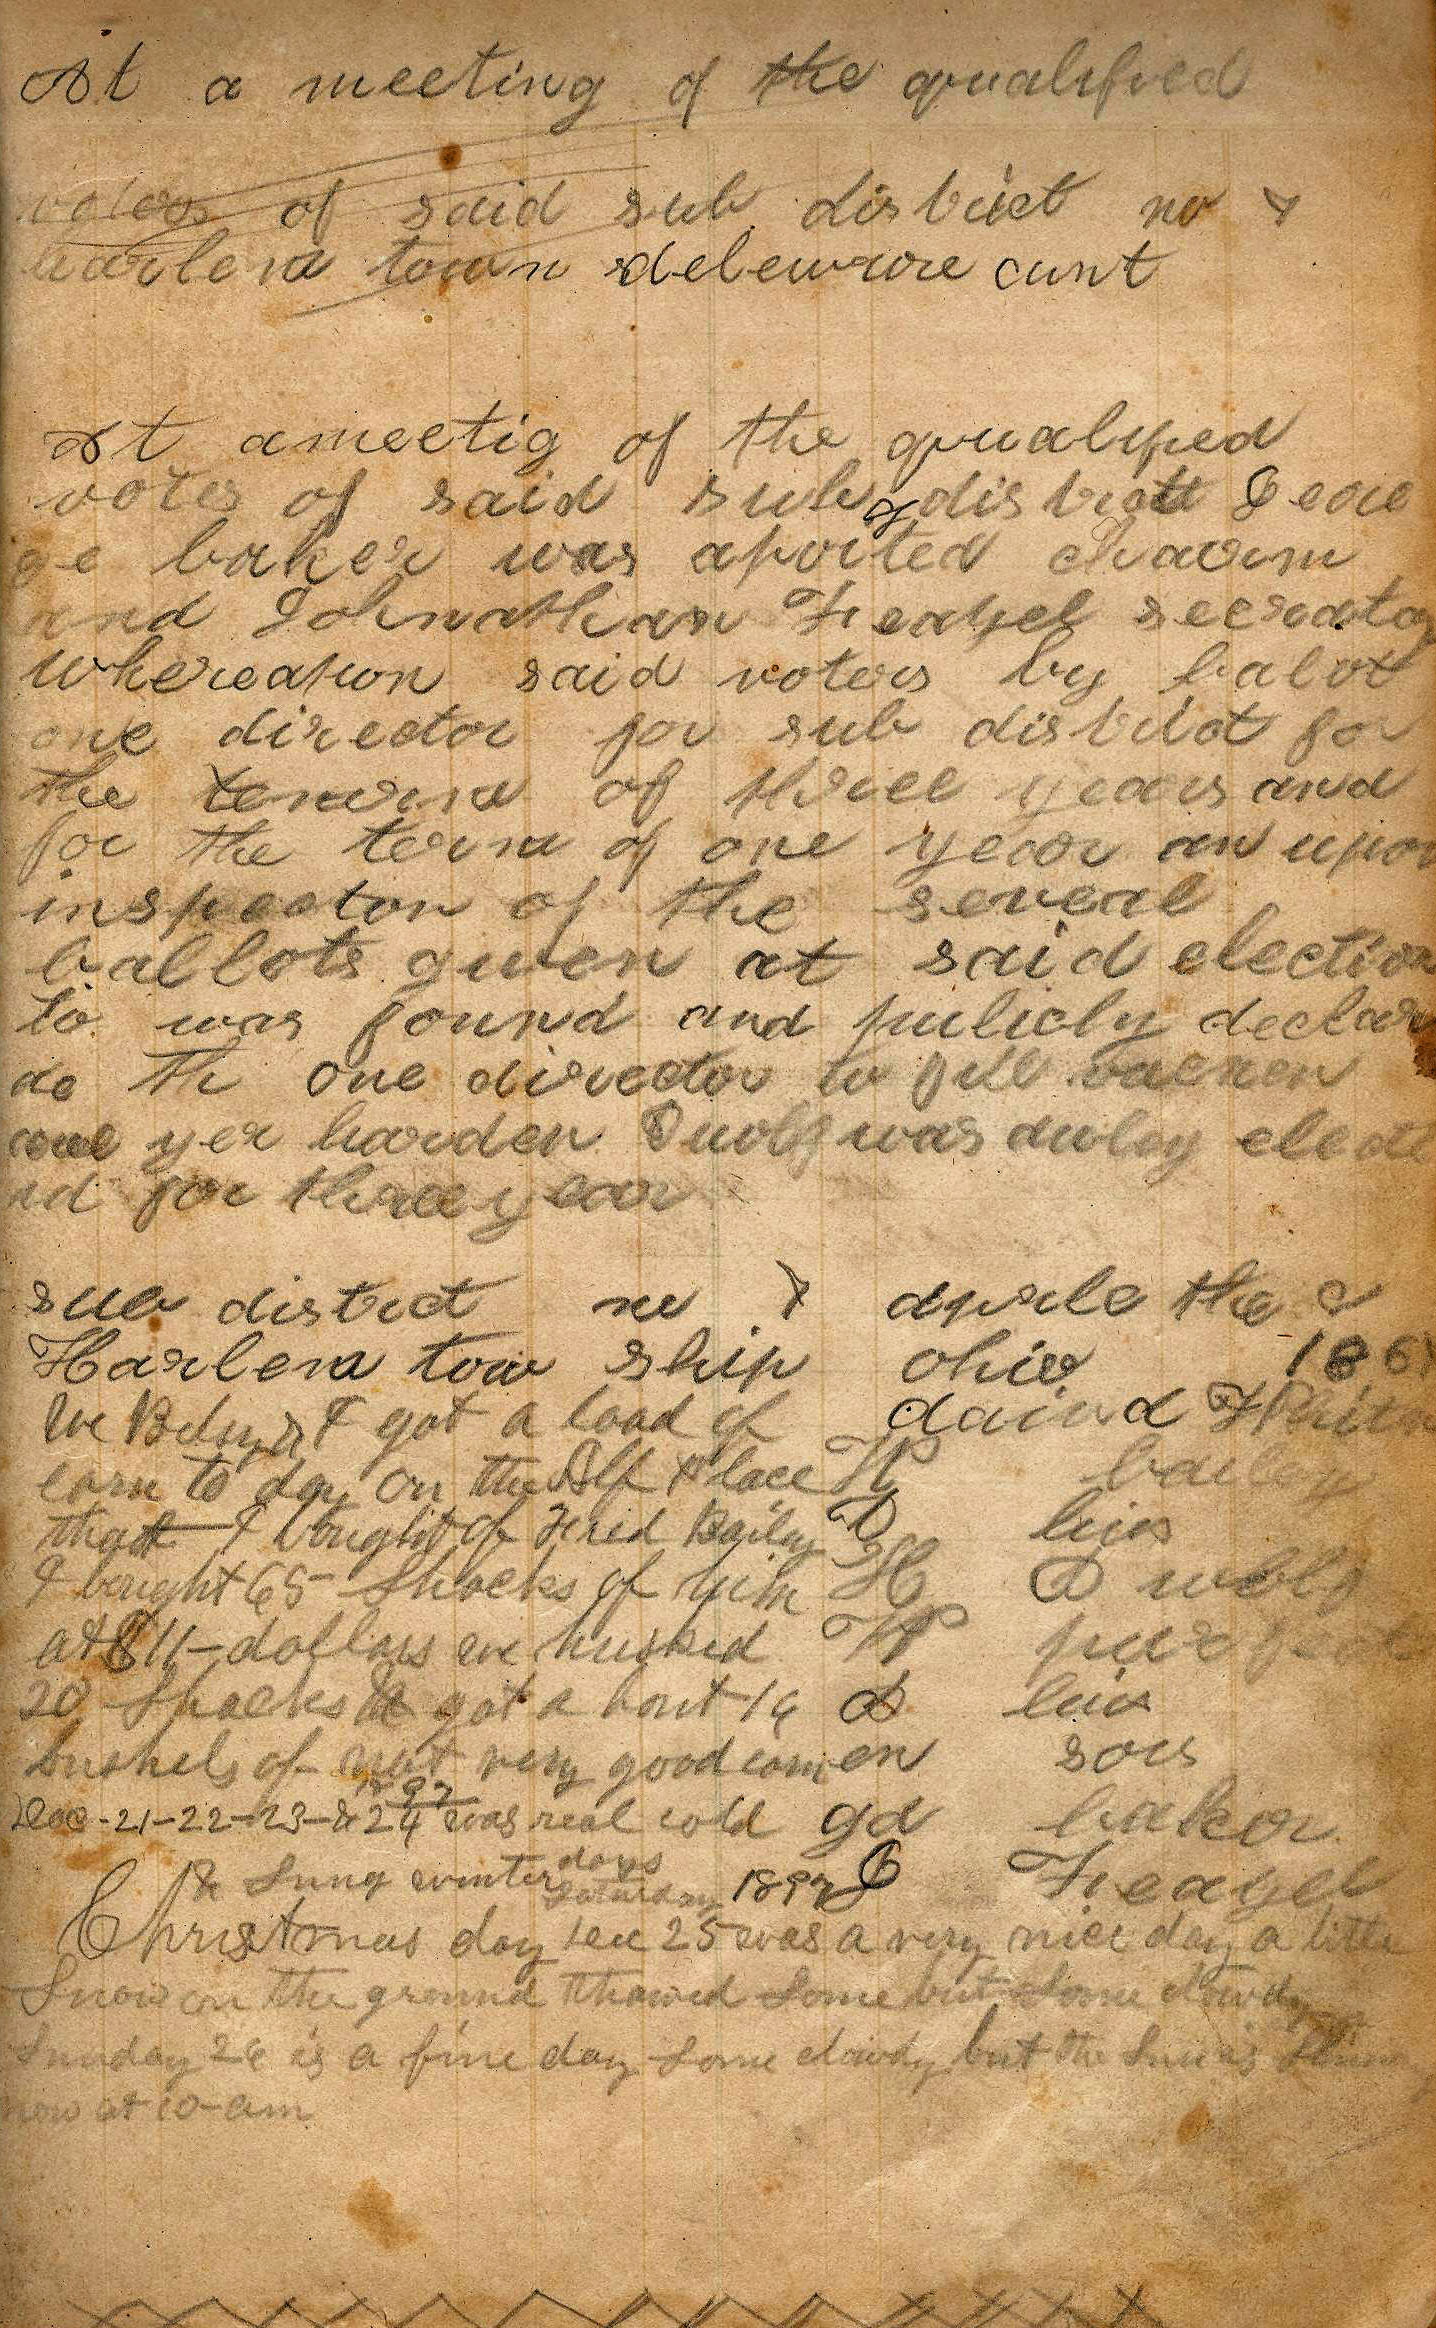 At a meeting of the qualified
voters of said sub district no 7
harlem town delewware cunt
At ameetig of the qualified
voters of said sub district Geor
ge baker was apoited chairm
and Johnathan Feazel secratary
whereapon said voters by balot
one director for sub district for
the term of three years and
for the term of one year an upon
inspecton of the several
ballots given at said election
to was found and pulicly declar
de th one director to fill
one yer harden D wolf was duly elect
ed for three year
sub district no 7 aprile the
Harlem tow ship ohio 186
We Boys & I got a load of
corn to day on the Alf Place
that I bought of Fred Baily
I bought 65 Shocks of him
at $11 dollars we husked
20 Shocks & got a bout 16
bushels of not very good corn
daivd
H P bailey
D lies
H D wolf
H P
D lies
en sois
ge baker
J Feazel
Dec-21-22-23-& 24 97 was real cold
winter days
Saturday 1897
Christmas day Dec 25 was a very nice day a little
Snow on the ground thawed Some but Some cloudy
Sunday 26 is a fine day Some cloudy but the Sun is Shining
now at 10-am